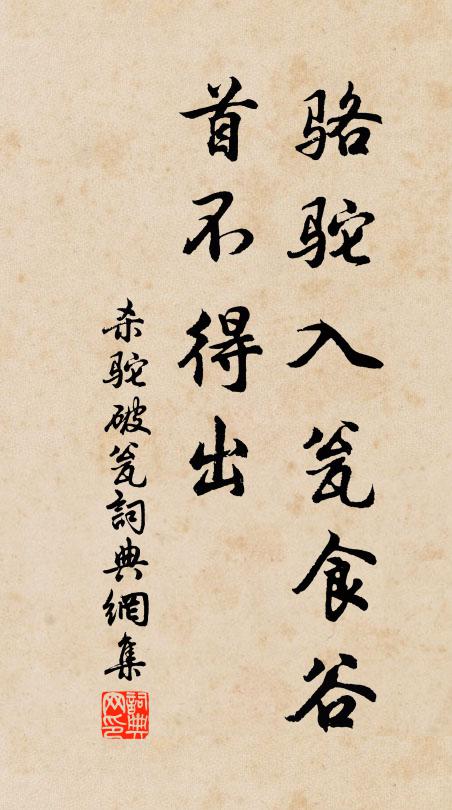 骆驼入瓮食谷
首不得出
杀驼破瓮词典網集
詞典
网印